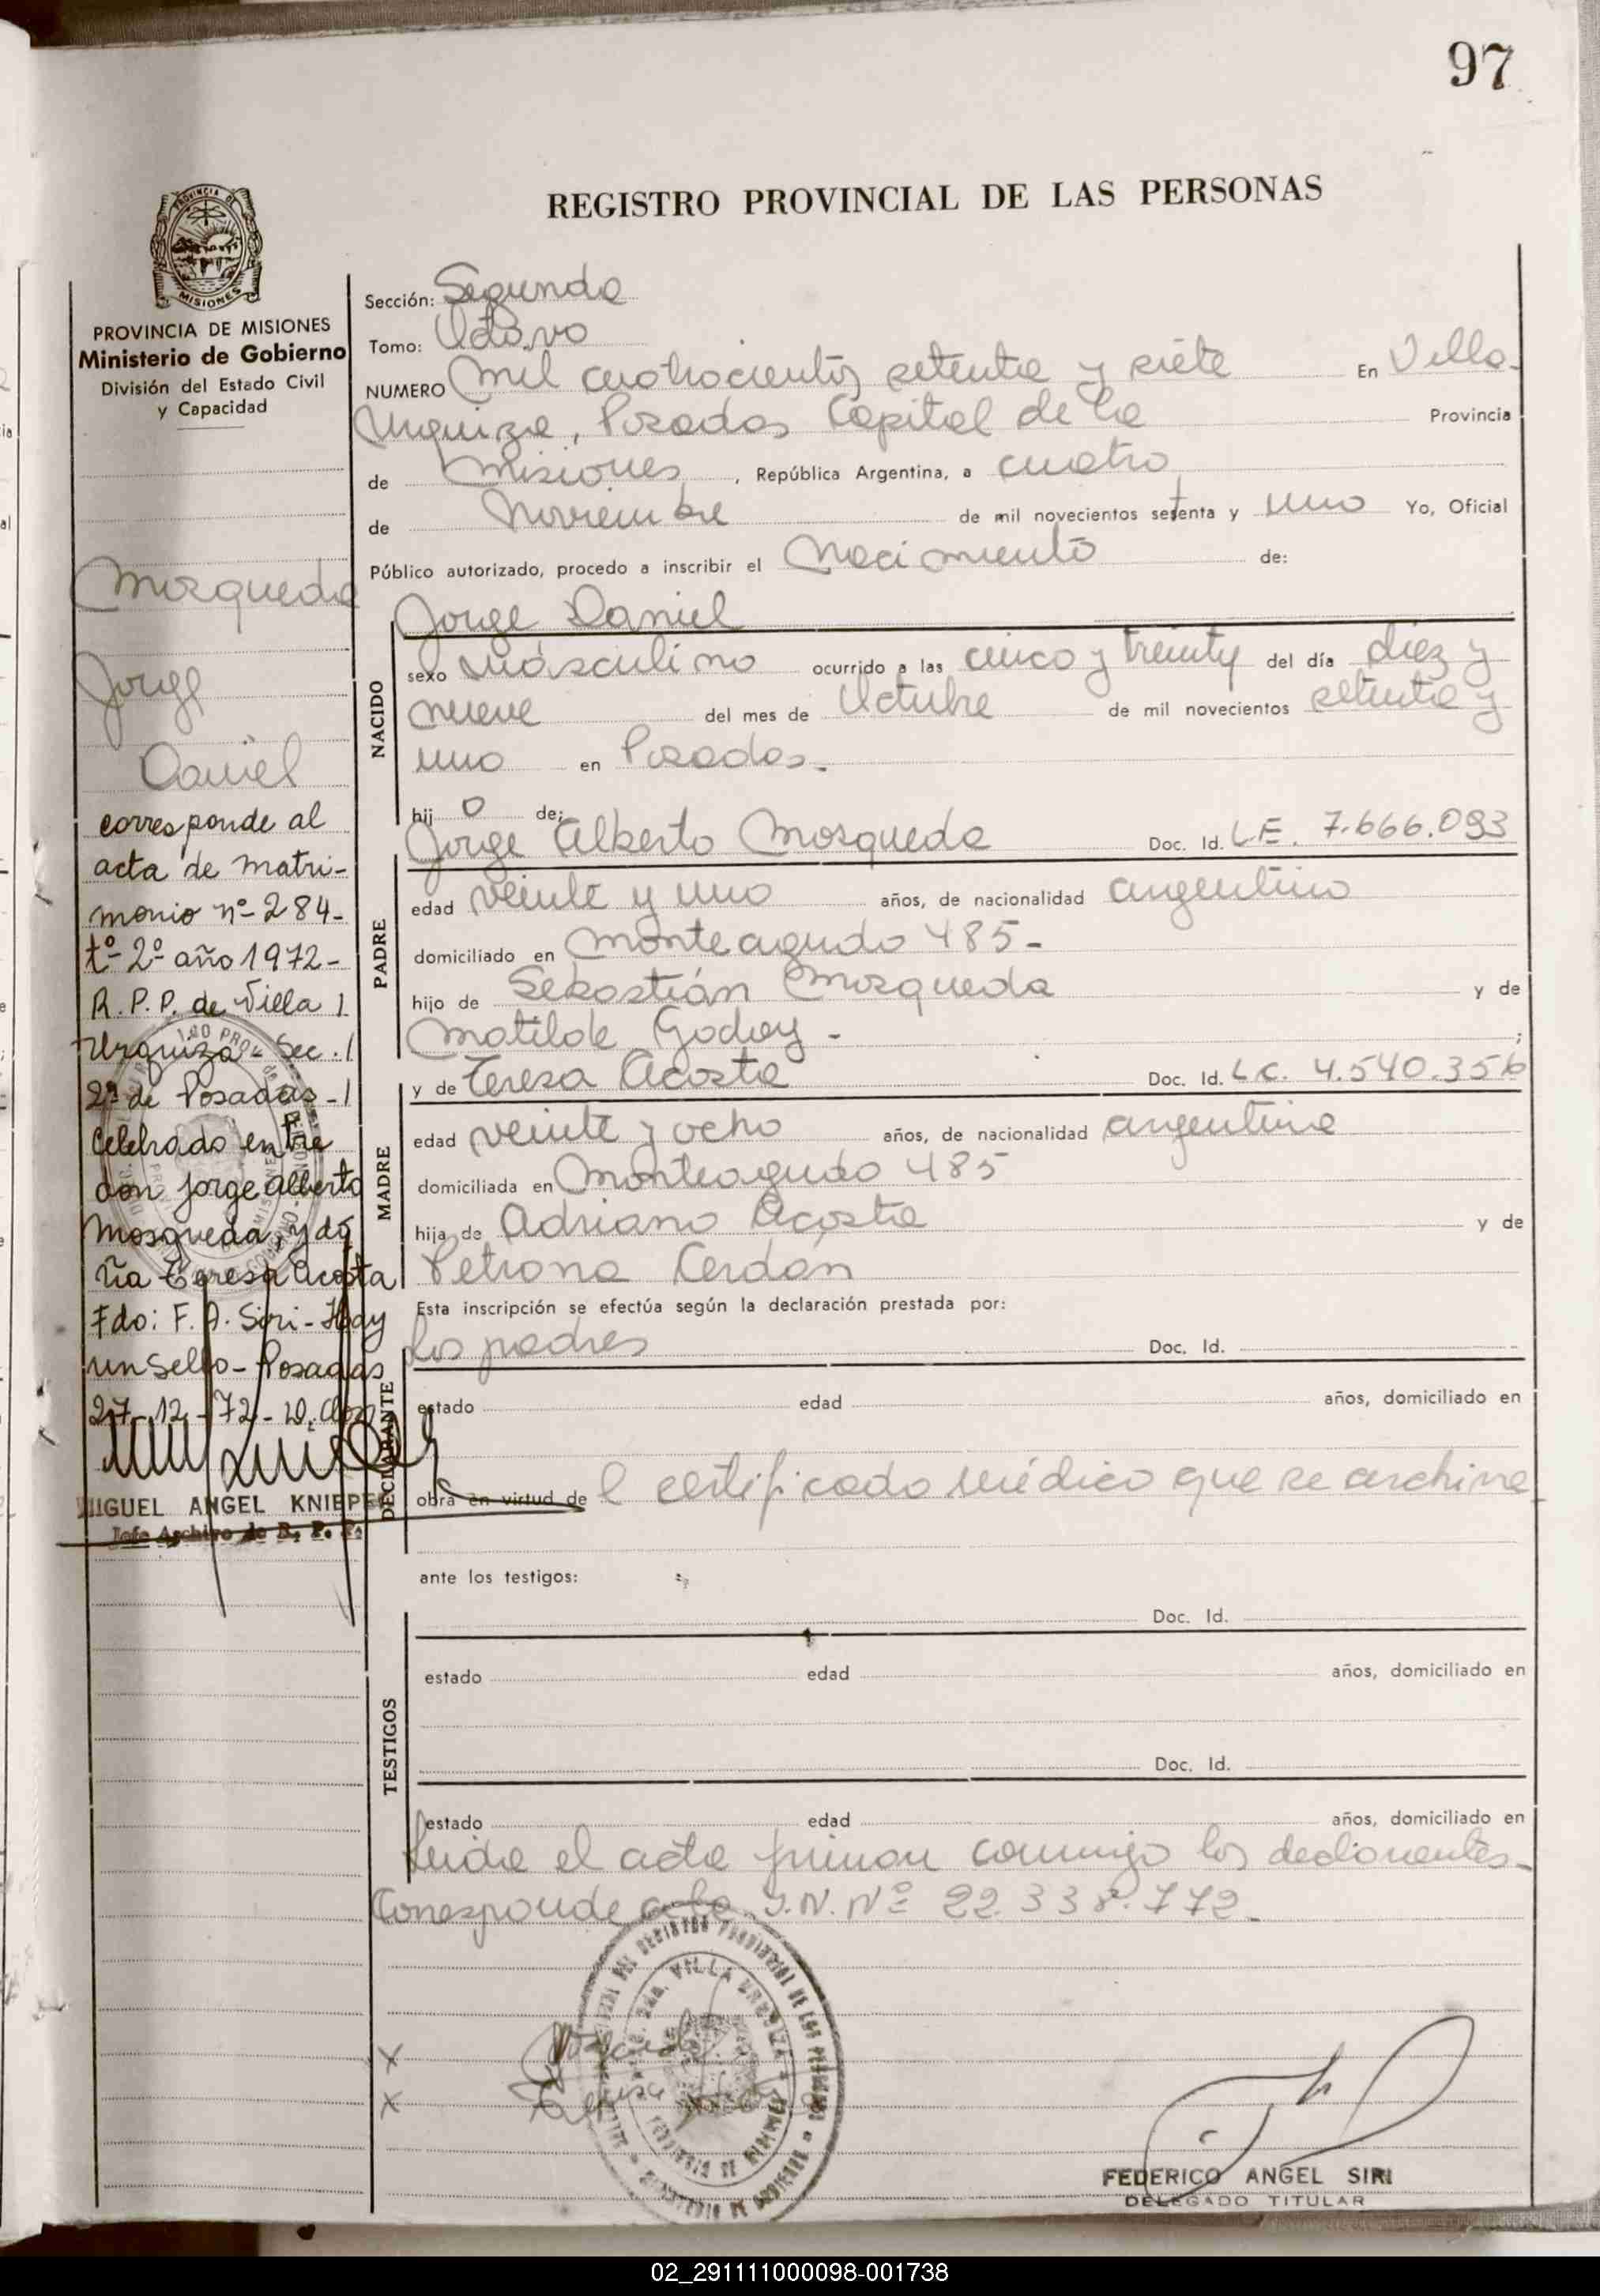 97
REGISTRO PROVINCIAL DE LAS PERSONAS
PROVINCIA DE MISIONES
Ministerio de Gobierno
División del Estado Civil
y Capacidad
Mosqueda
Jorge
Daniel
corresponde al
acta de matri-
monio nº 284-
tº 2º año 1972-
R. P. P. de Villa /
Urquiza - Sec. /
2ª de Posadas - /
Celebrado entre
don Jorge Alberto
Mosqueda, y do
ña Teresa Acosta
Fdo: F. A. Siri - Hay
un Sello - Posadas
27-12-72-
MIGUEL ANGEL KNIEPE
Jefe Archivo de R. P. P.
Sección: Segunda
Tomo: Octavo
NUMERO Mil cuatrocientos setenta y siete En Villa
Urquiza, Posadas Capital de la Provincia
de Misiones, República Argentina, a cuatro
de Noviembre de mil novecientos setenta y uno Yo, Oficial
Público autorizado, procedo a inscribir el Nacimiento de:
Jorge Daniel
NACIDO
sexo Másculino ocurrido a las cinco y treinty del día diez y
nueve del mes de Octubre de mil novecientos setenta y
uno en Posadas.
hij o de:
Jorge Alberto Mosqueda Doc. Id. L.E. 7.666.093
PADRE
edad veinte y uno años, de nacionalidad argentino
domiciliado en Monteagudo 485-
hijo de Sebastián Mosqueda y de
Matilde Godoy - ;
y de Teresa Acosta Doc. Id. L.C. 4.540.356
MADRE
edad veinte y ocho años, de nacionalidad argentina
domiciliada en Monteagudo 485
hija de Adriano Acosta y de
Petrona Cerdán
Esta inscripción se efectúa según la declaración prestada por:
los padres Doc. Id.
DECLARANTE
estado edad años, domiciliado en
obra en virtud de l certificado médico que se archiva
ante los testigos:
Doc. Id.
TESTIGOS
estado edad años, domiciliado en
Doc. Id.
estado edad años, domiciliado en
Leida el acta firman conmigo los declarantes-
Corresponde a la I.N. Nº 22.338.772.
X
X
FEDERICO ANGEL SIRI
DELEGADO TITULAR
02_291111000098-001738